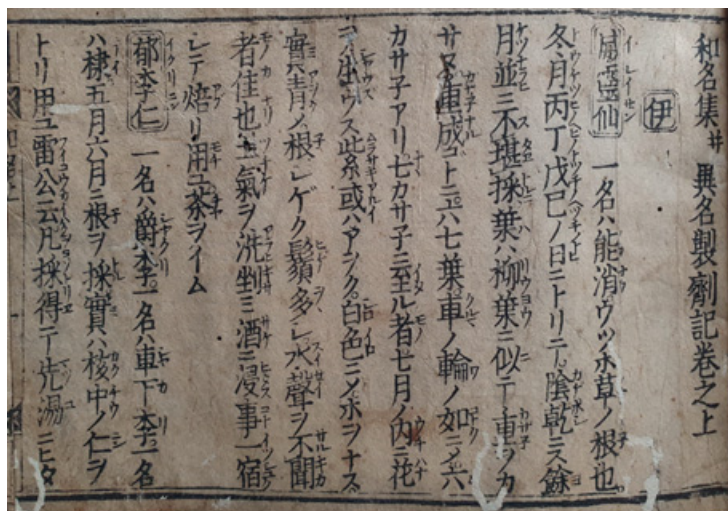 和名集并異名製剤記巻之上
伊
威霊仙 一名ハ能消ウツホ草ノ根也
冬月丙丁戊巳ノ日ニトリニテ陰乾ニス餘
月並ニ不堪採葉ハ柳葉ニ似テ重ヲカ
サ子車成コト六七葉車ノ輪ノ如ニメ六
カサ子アリ七カサ子ニ至ル者七月ノ内ニ花
ヲ出ウス紫或ハアンク白色ニメホヲナス
實青ノ根シゲク鬚多シ水聲ヲ不聞
者佳也土氣ヲ洗剉ミ酒ニ浸事一宿
シテ焙リ用ユ茶ヲイム
郁李仁 一名ハ爵李一名ハ車下李一名
ハ棣五月六月ニ根ヲ採實ハ核中ノ仁ヲ
トリ用ユ雷公云凡採得テ先湯ニヒタ